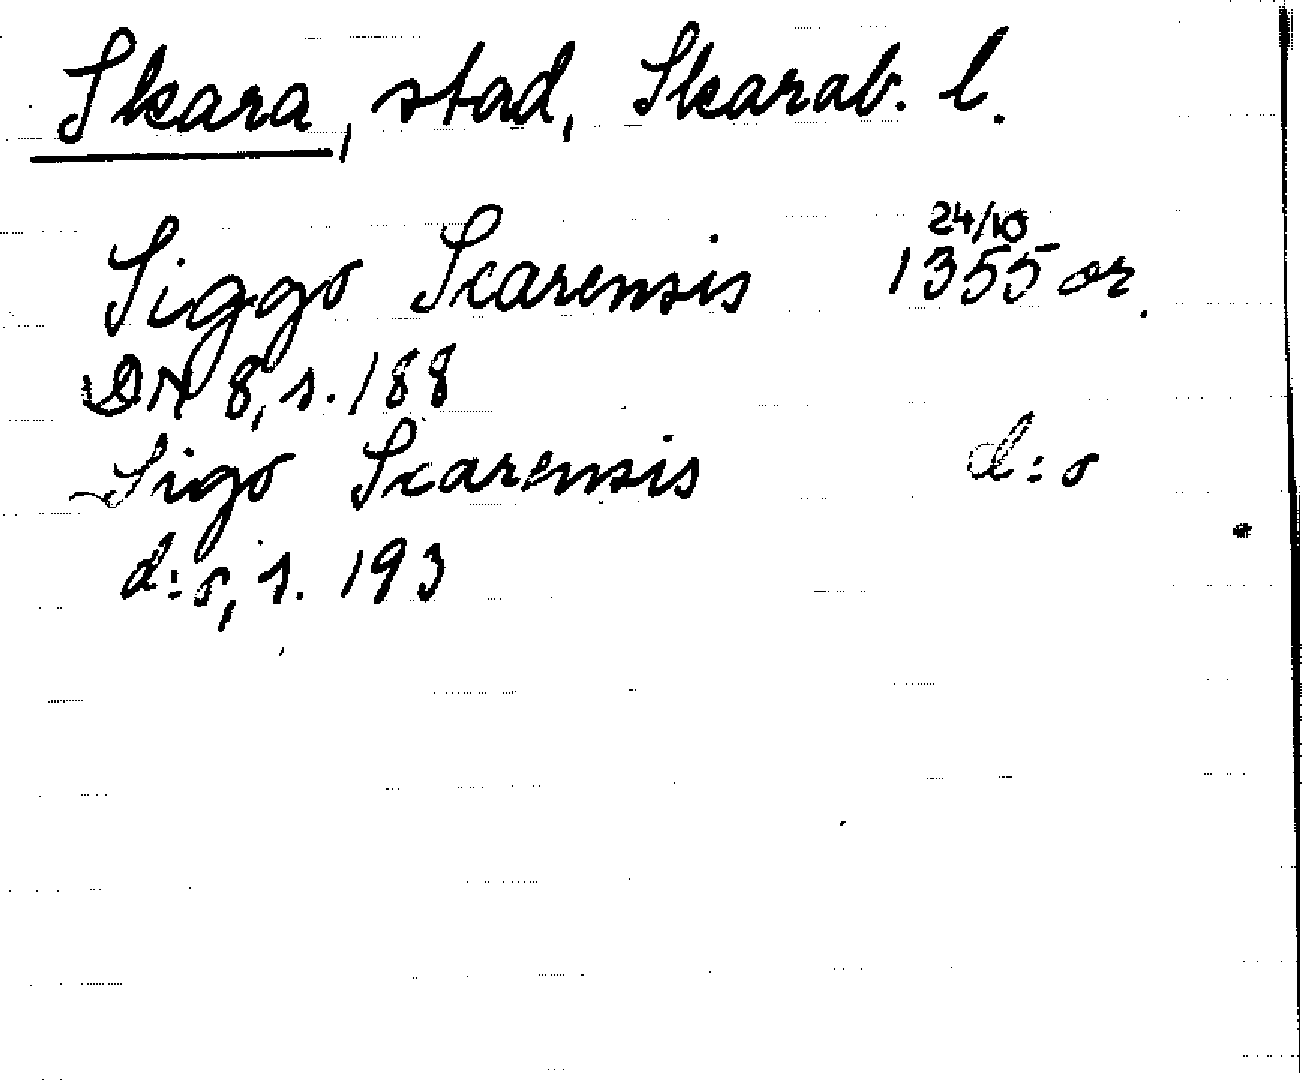 Skara, stad, Skarab. l.
Siggo Scarensis 24/10 1355 or.
DN 8, s. 188
Sigo Scarensis d:o
d:o, s. 193